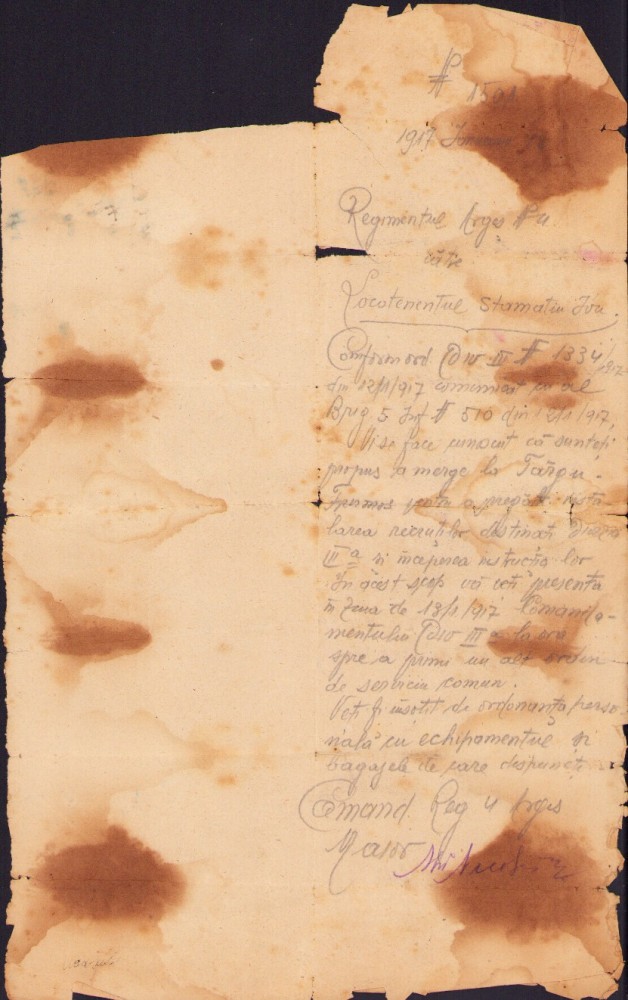 № 1501
1917
Regimentul Argeș № 4
către
Locotenentul Stamatiu Ion.
Conform ord. Div III № 1334/917
din 12/I/917 comunicat cu al
Brig 5 Inf № 510 din 12/1/917,
Vi se face cunoscut că sunteți
propus a merge la Târgu-
Frumos pentru a prepara insta
larea recruților destinați Diviziei
III a și începerea instrucției lor
În acest scop vă veți presenta
în ziua de 13/1/917 Comanda-
mentului Div III a
spre a primi un alt ordin
de serviciu comun.
Veți fi însoțit de ordonanța perso
nală cu echipamentul și
bagajele de care dispuneți
Comand. Reg 4 Argeș
Maior